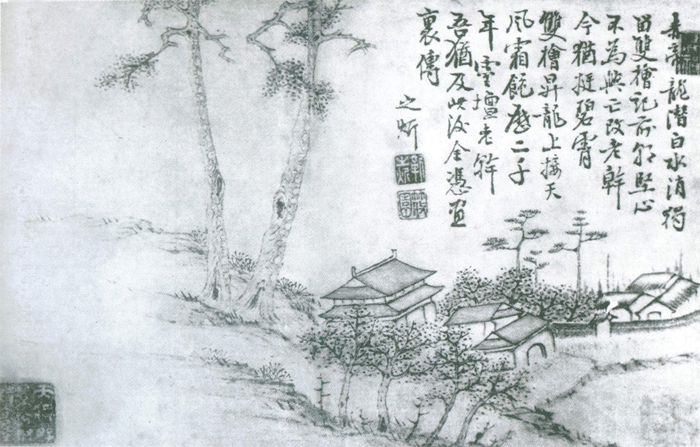 赤帝龍潛白水消獨
留雙檜記前朝堅心
不為興亡改老幹
今猶挺碧霄
雙檜昇龍上接天
風霜飽歷二千
年壇老幹
吾猶及此後全憑畫
裏傳
之